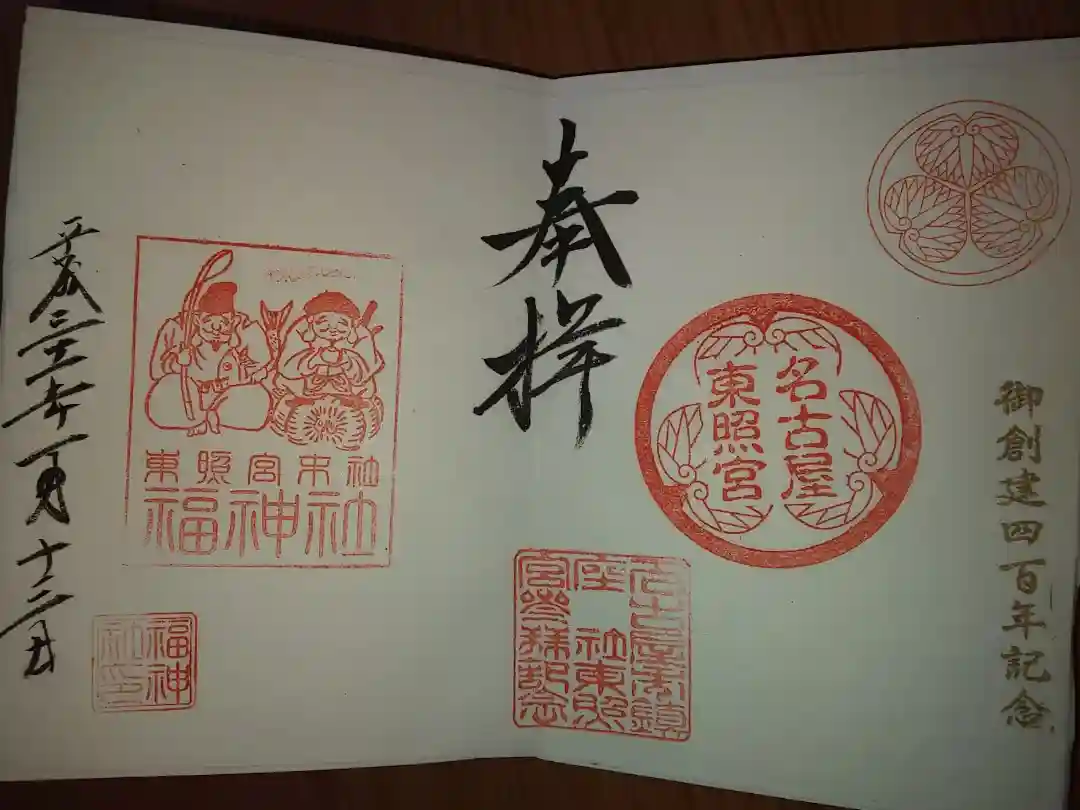 御創建四百年記念
名古屋
東照宮
奉拝
座 社東照
宮参拝記念
東照宮末社
福神社
福神
社印
平成三十一年一月十二日